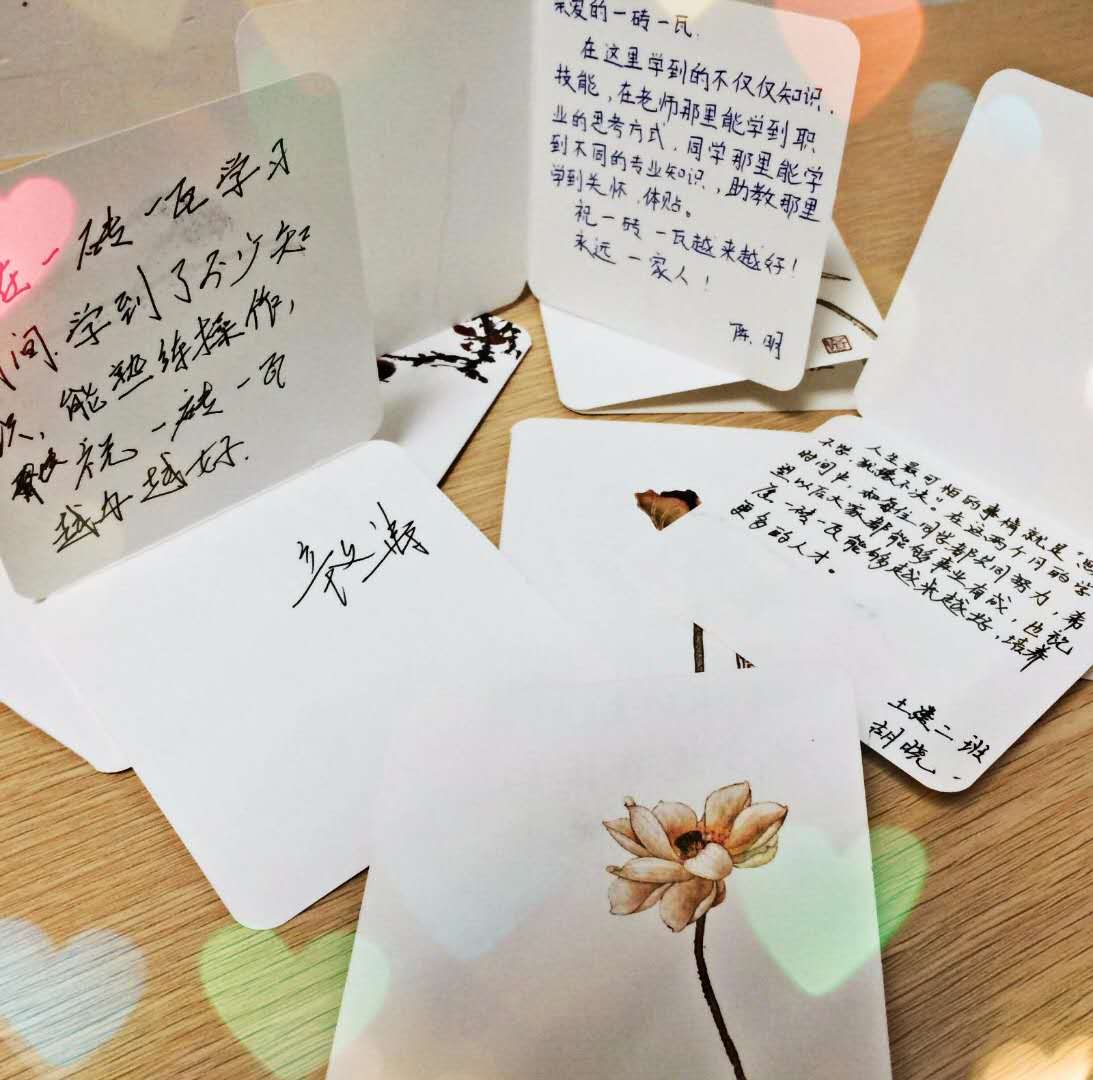 在一砖一瓦学习
间.学到了不少知
识,能熟练操作,
祝一砖一瓦
越办越好.
亲爱的一砖一瓦.
在这里学到的不仅仅知识.
技能,在老师那里能学到职
业的思考方式,同学那里能学
到不同的专业知识,助教那里
学到关怀.体贴。
祝一砖一瓦越来越好!
永远一家人!
陈.明
人生最可怕的事情就是"思
不学,犹豫不决。在这两个月的学
时间中,和每位同学都共同努力,希
望以后大家都能够事业有成,也祝
愿一砖一瓦能够越来越好,培养
更多的人才。
土建二班
胡晓.